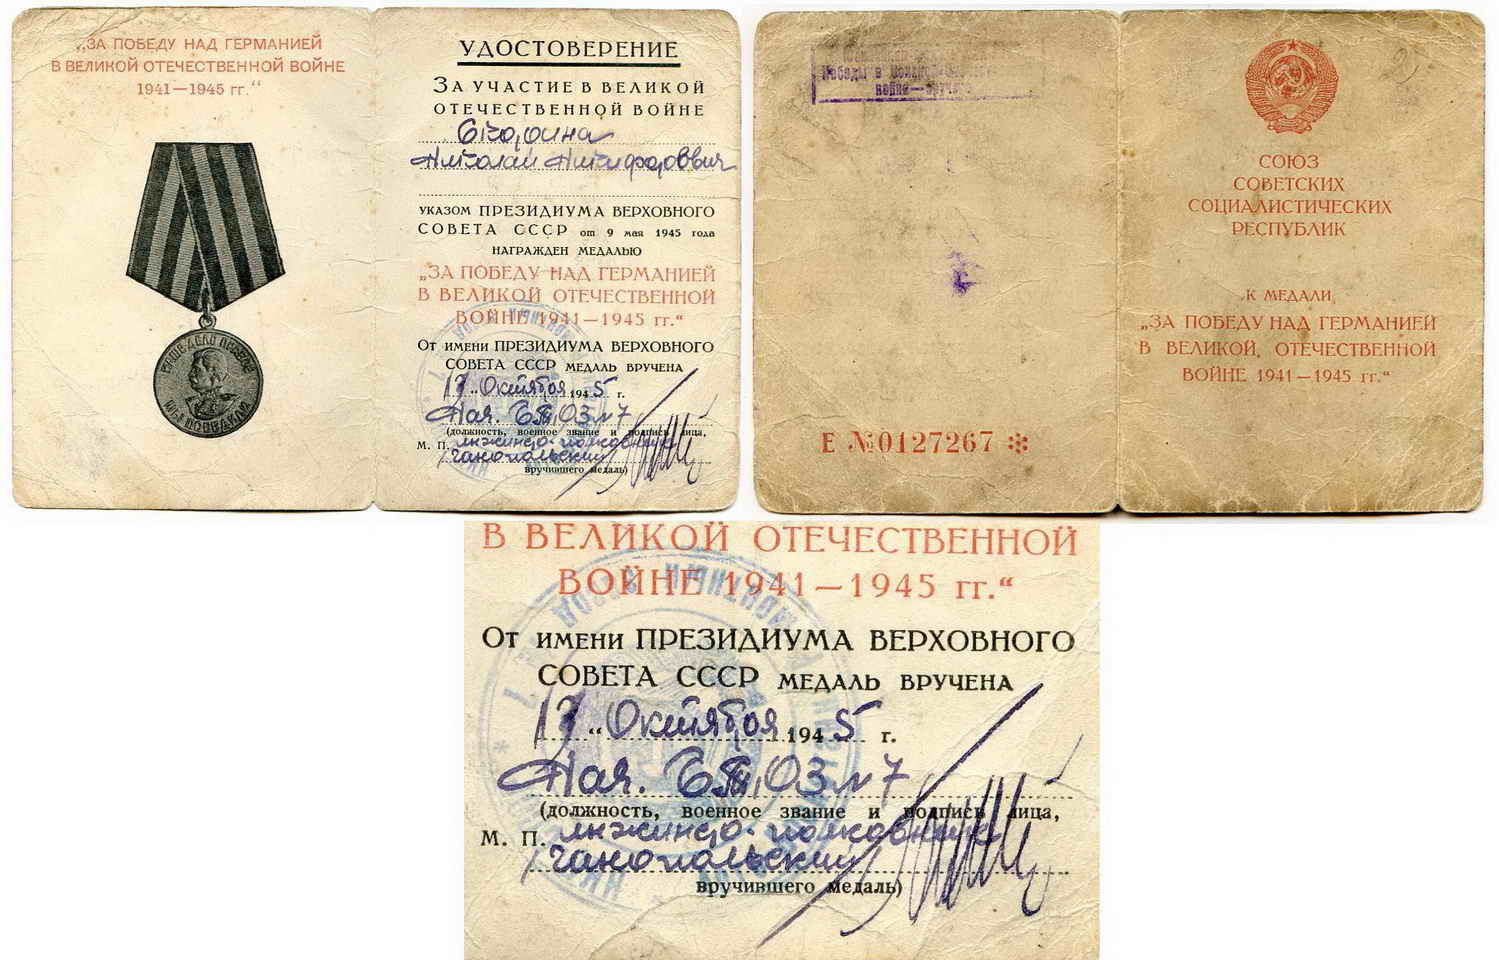 „ЗА ПОБЕДУ НАД ГЕРМАНИЕЙ
В ВЕЛИКОЙ ОТЕЧЕСТВЕННОЙ ВОЙНЕ
1941—1945 гг.“
НАШЕ ДЕЛО ПРАВОЕ
МЫ ПОБЕДИЛИ
УДОСТОВЕРЕНИЕ
ЗА УЧАСТИЕ В ВЕЛИКОЙ
ОТЕЧЕСТВЕННОЙ ВОЙНЕ
Николай Никифорович
УКАЗОМ ПРЕЗИДИУМА ВЕРХОВНОГО
СОВЕТА СССР от 9 мая 1945 года
НАГРАЖДЕН МЕДАЛЬЮ
„ЗА ПОБЕДУ НАД ГЕРМАНИЕЙ
В ВЕЛИКОЙ ОТЕЧЕСТВЕННОЙ
ВОЙНЕ 1941—1945 гг.“
От имени ПРЕЗИДИУМА ВЕРХОВНОГО
СОВЕТА СССР МЕДАЛЬ ВРУЧЕНА
Октября 1945 г.
Нач.
(должность, военное звание и подпись лица,
М. П. полковник
вручившего медаль)
Победы в
войне—
Е №0127267
СОЮЗ
СОВЕТСКИХ
СОЦИАЛИСТИЧЕСКИХ
РЕСПУБЛИК
К МЕДАЛИ
„ЗА ПОБЕДУ НАД ГЕРМАНИЕЙ
В ВЕЛИКОЙ ОТЕЧЕСТВЕННОЙ
ВОЙНЕ 1941—1945 гг.“
В ВЕЛИКОЙ ОТЕЧЕСТВЕННОЙ
ВОЙНЕ 1941—1945 гг.“
От имени ПРЕЗИДИУМА ВЕРХОВНОГО
СОВЕТА СССР МЕДАЛЬ ВРУЧЕНА
Октября 1945 г.
Нач.
(должность, военное звание и подпись лица,
М. П. полковник
вручившего медаль)